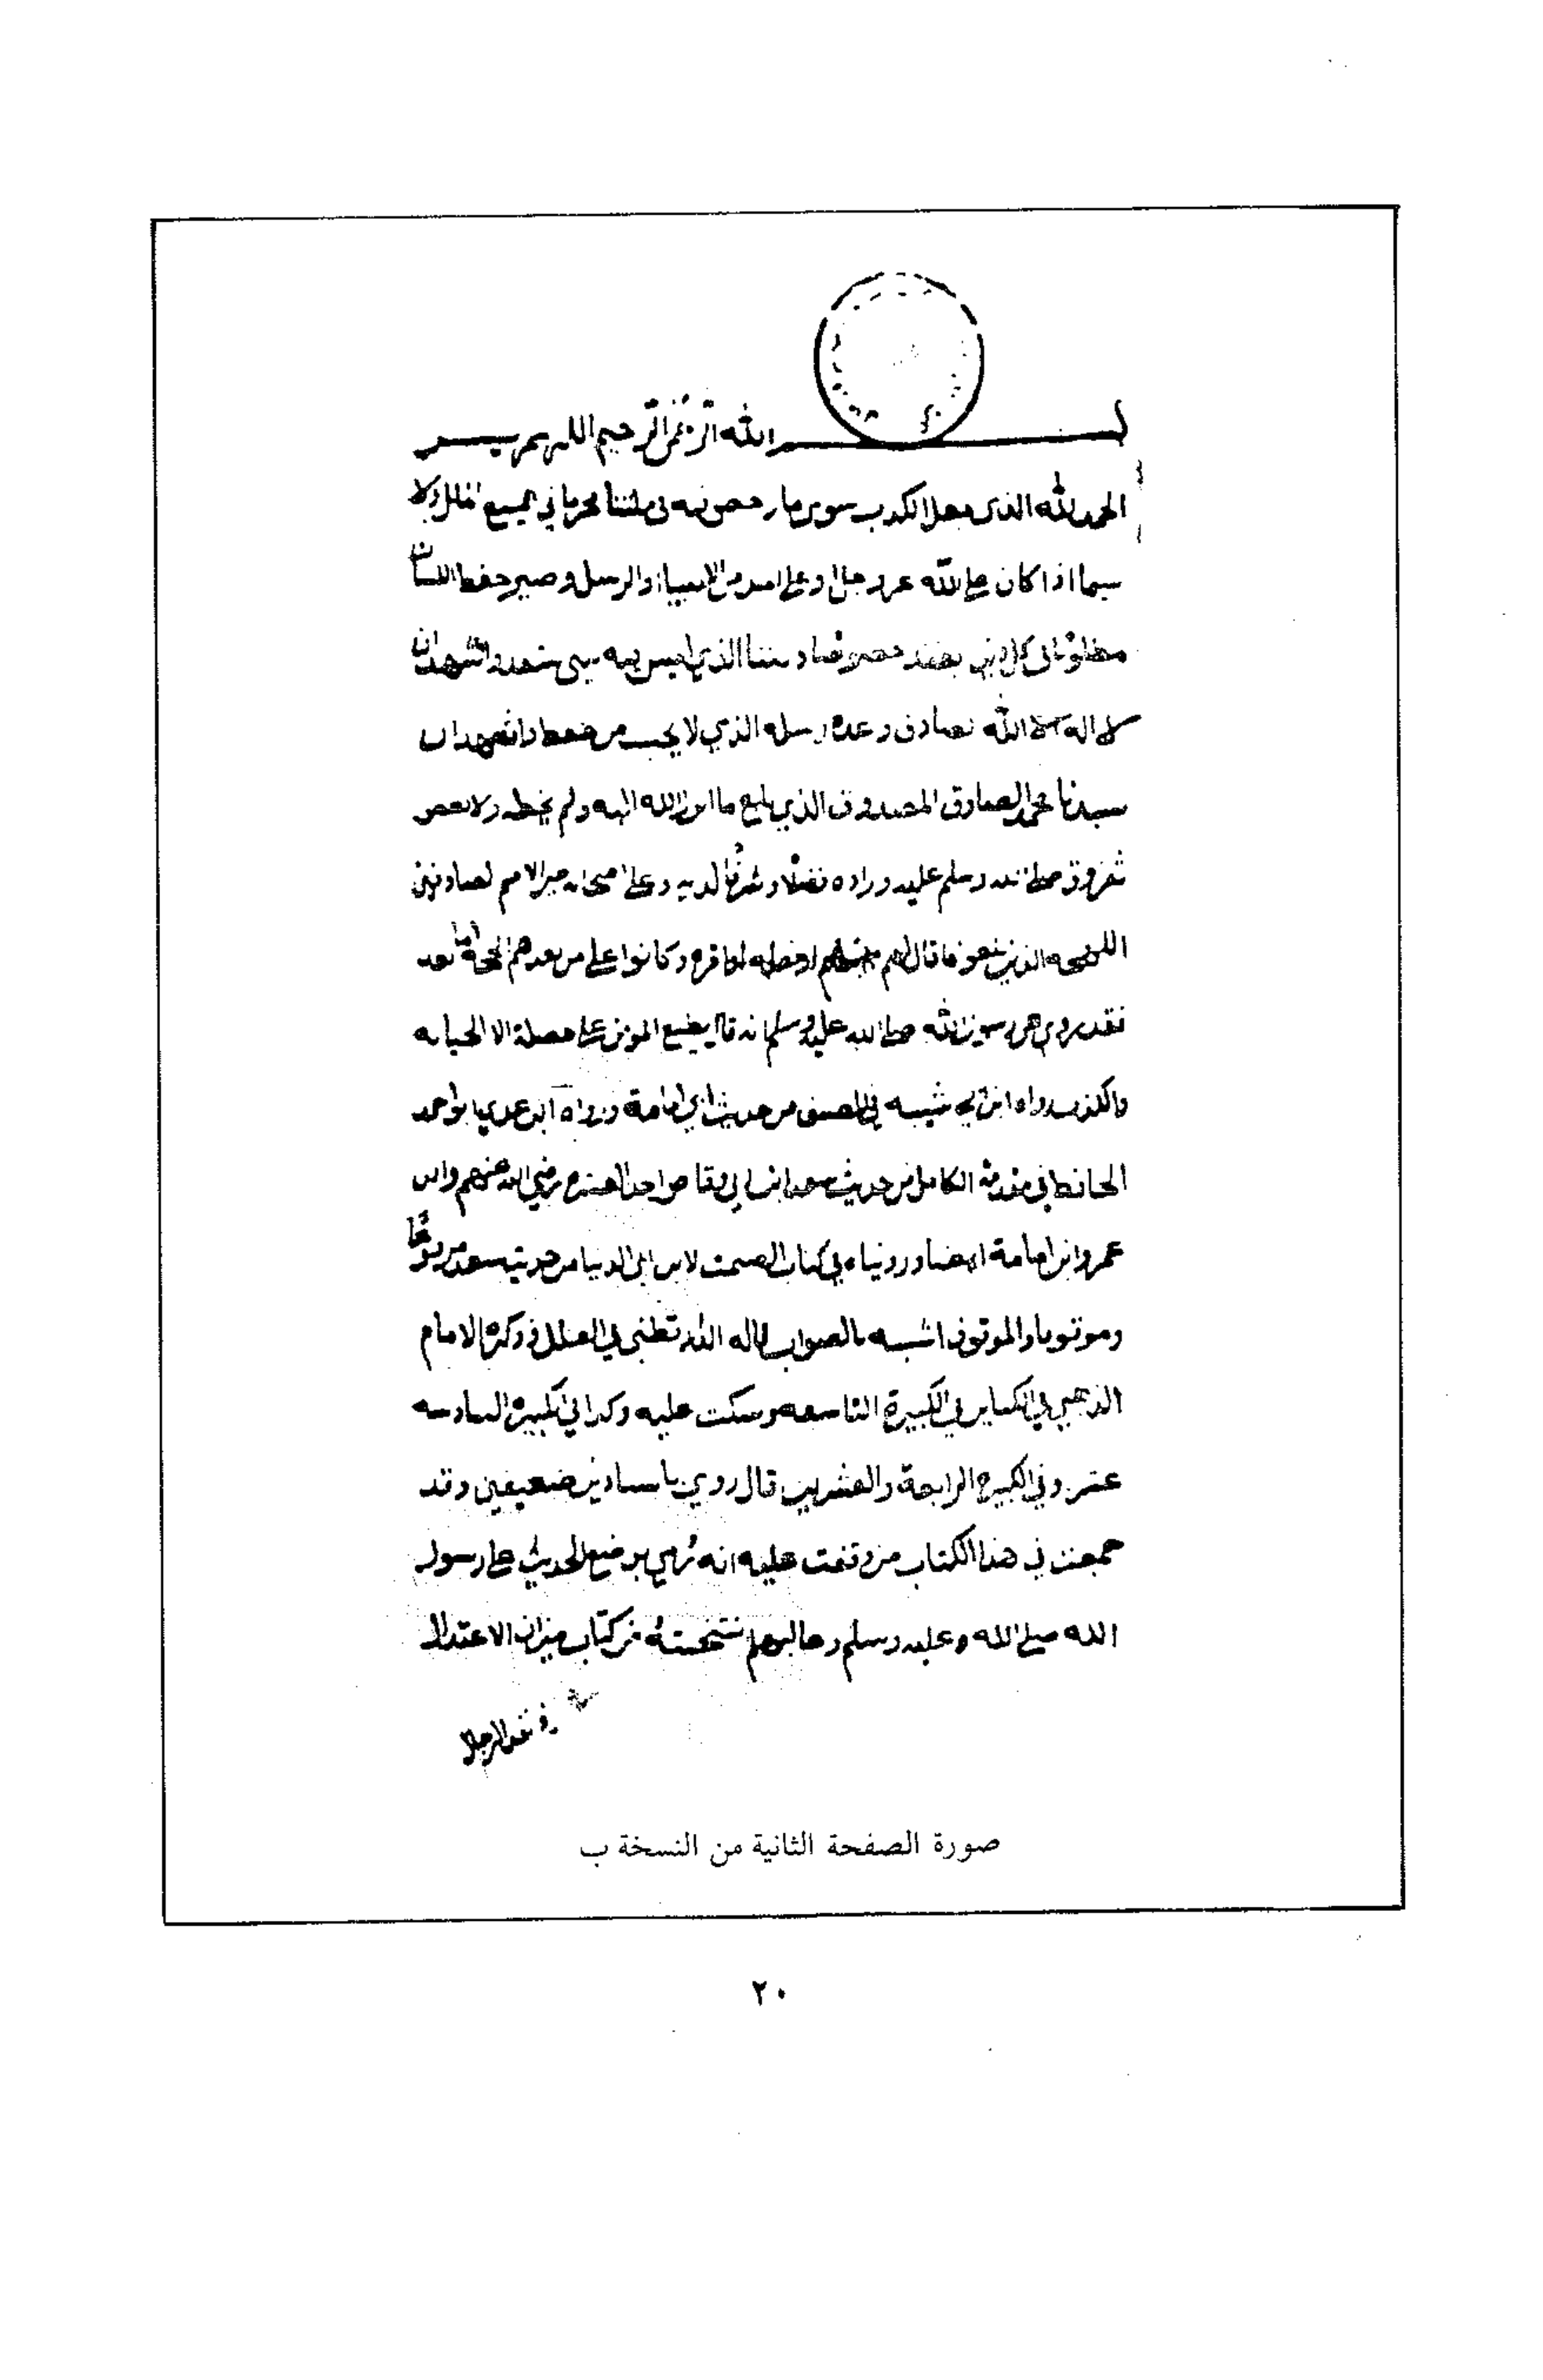 بسم الله الرحمن الرحيم اللهم يسر
الحمد لله الذي جعل الكذب سوى ما رخص فيه في ملتنا محرما في جميع الملل ولا
سيما اذا كان على الله عز وجل او على احد من الانبياء والرسل وصير حفظ اللسان
في كل واشهد ان
لا اله الا الله رسله الذي لا واشهد ان
سيدنا محمد الصادق المصدوق الذي بلغ ما انزل الله اليه ولم ولا
صلى الله وسلم عليه وزاده فضلا وشرفا لديه وعلى اصحابه خير الامم
قال لهم وكانوا على من بعدهم اما بعد
فقد روي عن رسول الله صلى الله عليه وسلم انه قال يطبع المؤمن على خصلة الا الخيانة
والكذب رواه ابن ابي شيبة في المصنف من حديث ابي امامة ورواه ابن عدي ابو احمد
الحافظ في مقدمة الكامل من حديث سعد ابن ابي وقاص احد العشرة رضي الله عنهم وابن
عمر وابي امامة ايضا ورويناه في كتاب الصمت لابن ابي الدنيا من حديث سعد مرفوعا
وموقوفا والموقوف اشبه بالصواب قاله الدارقطني في العلل وذكره الامام
الذهبي في الكباير في الكبيرة التاسعة وسكت عليه وكذا في الكبيرة السادسة
عشر وفي الكبيرة الرابعة والعشرين قال روي باسنادين ضعيفين وقد
جمعت في هذا الكتاب من وقفت عليه انه رمي بوضع الحديث على رسول
الله صلى الله وعليه وسلم وغالبهم انتخبته من كتاب ميزان الاعتدال
في نقد الرجال
صورة الصفحة الثانية من النسخة ب
٢٠